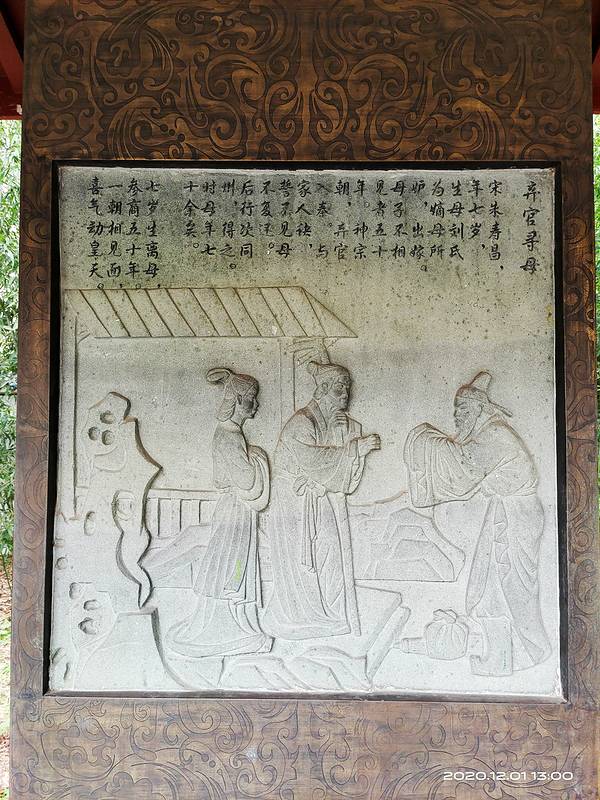 弃官寻母
宋朱寿昌，
年七岁，
生母刘氏
为嫡母所
妒，出嫁。
母子不相
见者五十
年。神宗
朝，弃官
入秦。与
家人诀，
誓不见母
不复还。
后行次同
州，得之。
时母年七
十余矣。
七岁生离母，
参商五十年。
一朝相见面，
喜气动皇天。
2020.12.01 13:00